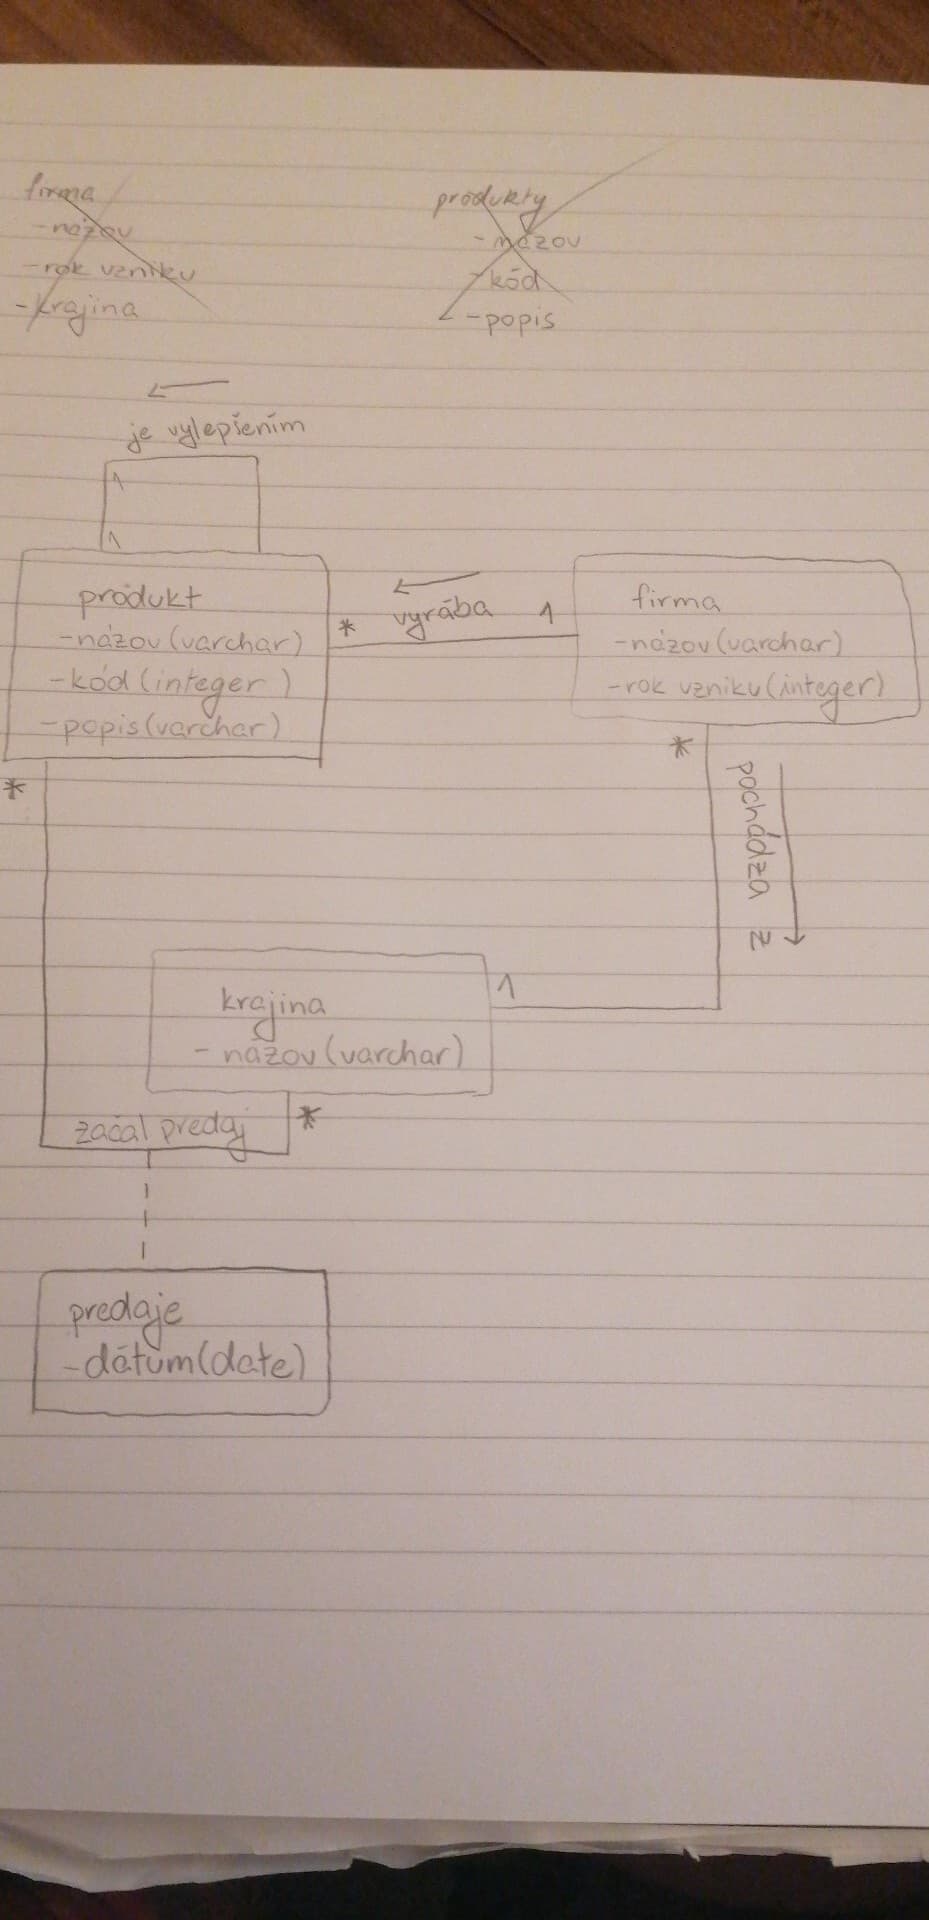 firma
-názov
-rok vzniku
-krajina
produkty
-názov
-kód
-popis
je vylepšením
1
1
produkt
-názov(varchar)
-kód(integer)
-popis(varchar)
*
vyrába
1
firma
-názov(varchar)
-rok vzniku(integer)
*
*
pochádza z
krajina
- názov(varchar)
1
začal predaj
*
predaje
-dátum(date)